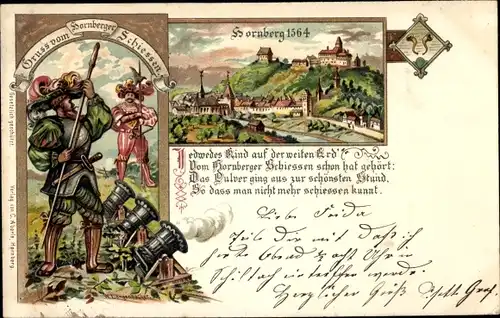 Gruss vom Hornberger Schiessen.
Hornberg 1564
Jedwedes Kind auf der weiten Erd'
Vom Hornberger Schiessen schon hat gehört;
Das Pulver ging aus zur schönsten Stund,
So dass man nicht mehr schiessen kunnt.
Liebe Frida
Teile Dir mit daß ich
heute Abend 8 Uhr in
Schiltach eintreffen werde.
Herzlicher Gruß
Gesetzlich geschützt.
Verlag von
Hornberg.